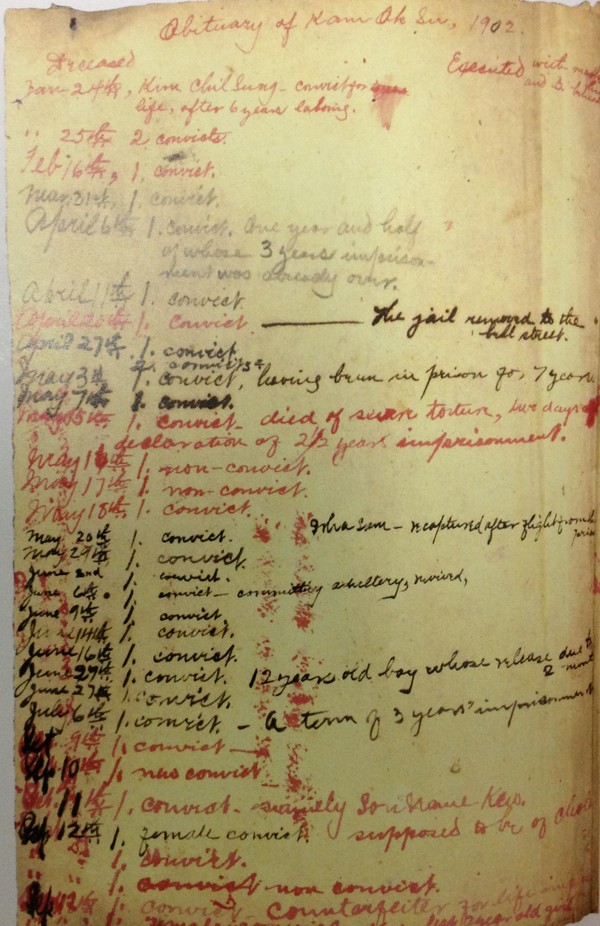 Obituary of Kam Ok Su, 1902.
Deceased
Executed with
and
Jan 24th, Kim Chil Sung - convict for
life, after 6 years laboring.
" 25th 2 convicts.
Feb 16th, 1. convict.
Mar 31st, 1. convict.
April 6th 1. convict. One year and half
of whose 3 years imprison-
ment was already over.
April 11th 1. convict
April 20th 1. convict. The jail removed to the
bell street.
April 27th. 1. convict
convicts
May 3d 1. convict, having been in prison for 7 years
May 7th 1. convict.
May 15th 1. convict - died of torture, two days
declaration of 2/2 year imprisonment.
May 16th 1. non-convict.
May 17th 1. non-convict.
May 18th 1. convict.
May 20th 1. convict. - recaptured after flight from
May 29th 1. convict.
June 2nd 1. convict.
June 6th. 1. convict - committing adultery,
June 9th 1. convict
June 14th 1. convict.
June 16th 1. convict.
June 29th 1. convict. 12 year old boy whose release due to
2
June 27th 1. convict.
July 6th 1. convict. - A term of 3 years' imprisonment
Sep 9th 1. convict -
Sep 10th 1. convict
Sep 11th 1. convict - namely
Sep 12th 1. female convict. supposed to be of
" 1. convict.
" 1. non convict.
Sep 12th 1. convict - counterfeiter for life
year old girl